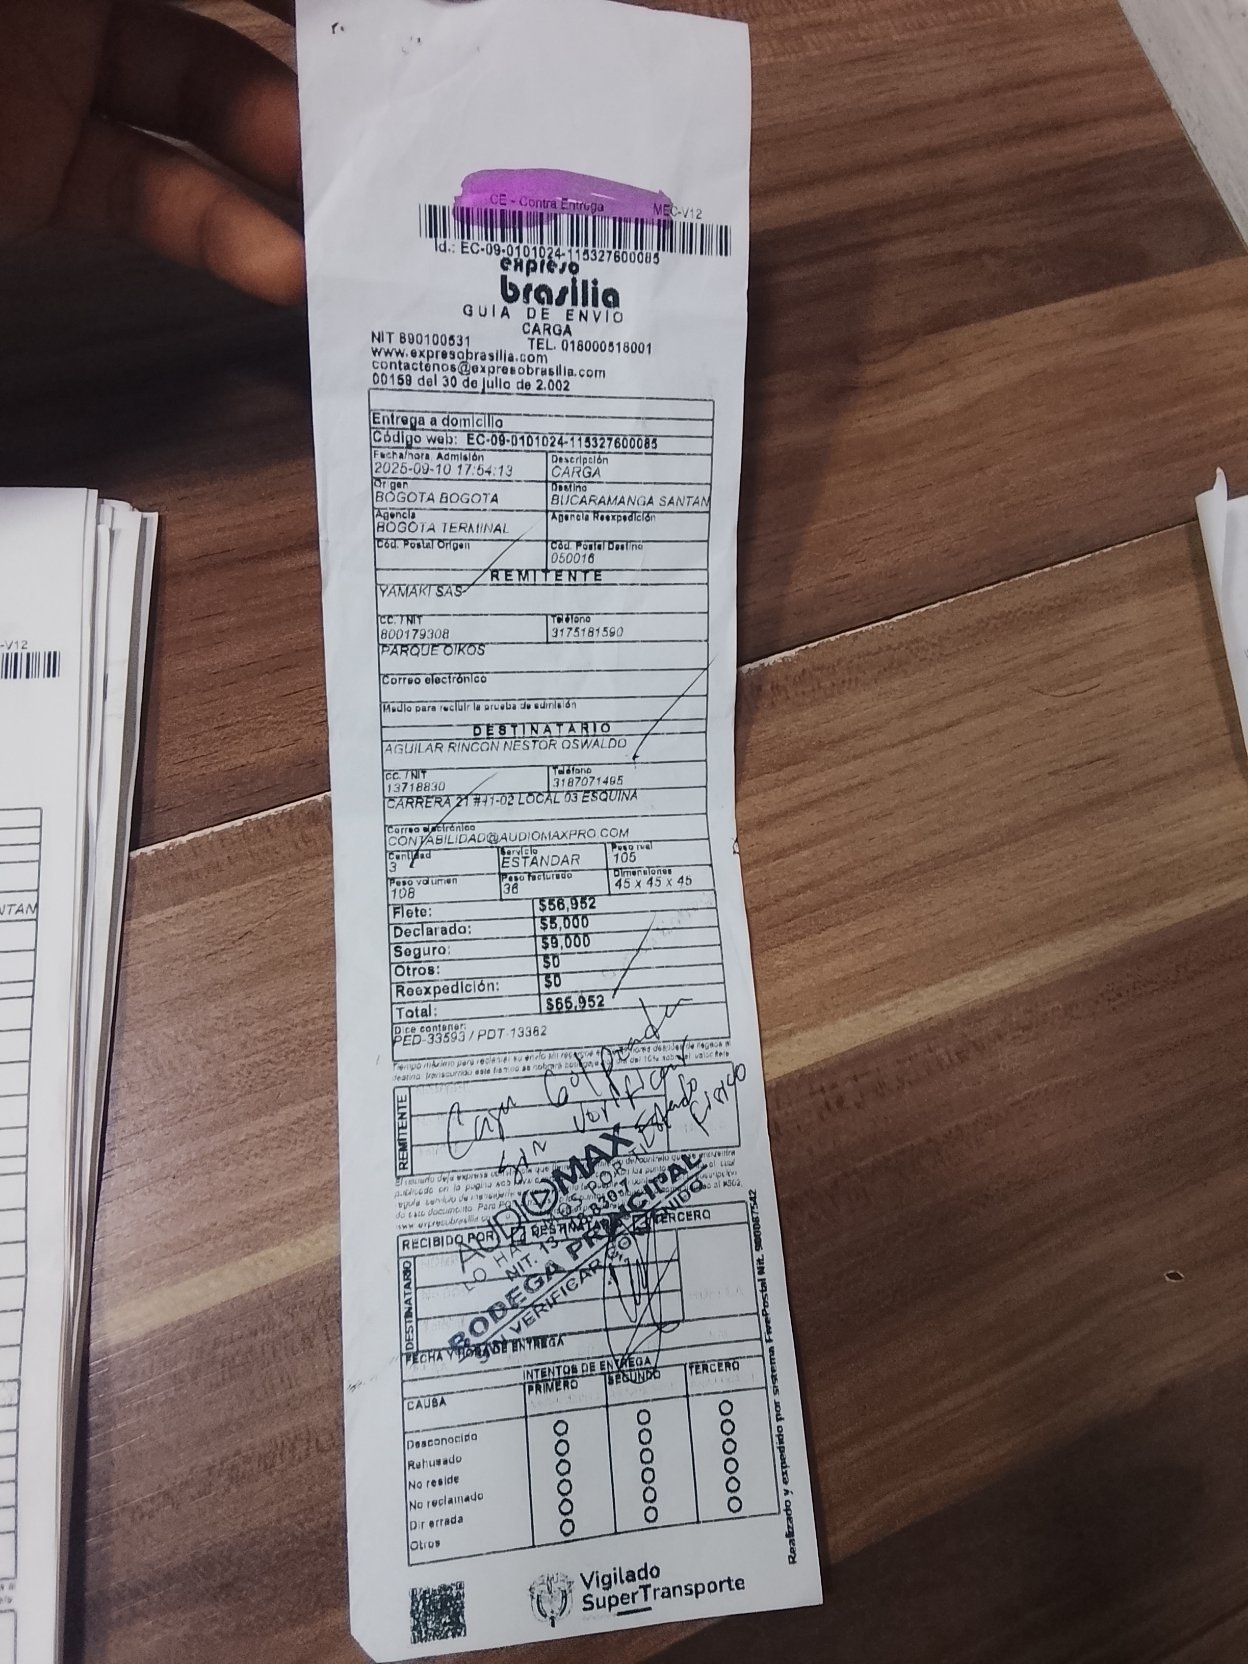 CE - Contra Entrega MEC-V12
Id.: EC-09-0101024-115327600085
expreso
brasilia
GUIA DE ENVIO
CARGA
NIT 890100531 TEL. 018000518001
www.expresobrasilia.com
contactenos@expresobrasilia.com
00159 del 30 de julio de 2.002
Entrega a domicilio
Código web: EC-09-0101024-115327600085
Fecha/hora. Admisión Descripción
2025-09-10 17:54:13 CARGA
Origen Destino
BOGOTA BOGOTA BUCARAMANGA SANTAN
Agencia Agencia Reexpedición
BOGOTA TERMINAL
Cód. Postal Origen Cód. Postal Destino
050016
REMITENTE
YAMAKI SAS
CC. / NIT Teléfono
800179308 3175181590
PARQUE OIKOS
Correo electrónico
Medio para recibir la prueba de admisión
DESTINATARIO
AGUILAR RINCON NESTOR OSWALDO
CC. / NIT Teléfono
13718830 3187071495
CARRERA 21 #41-02 LOCAL 03 ESQUINA
Correo electrónico
CONTABILIDAD@AUDIOMAXPRO.COM
Cantidad Servicio Peso real
3 ESTANDAR 105
Peso volumen Peso facturado Dimensiones
108 36 45 x 45 x 45
Flete: $56,952
Declarado: $5,000
Seguro: $9,000
Otros: $0
Reexpedición: $0
Total: $65,952
Dice contener:
PED-33593 / PDT-13382
Caja Golpeada
sin verificar
Estado
Fisico
REMITENTE
AUDIOMAX
LO HACEMOS POR TI
NIT. 13.718.830-7
BODEGA PRINCIPAL
SIN VERIFICAR CONTENIDO
RECIBIDO POR: DESTINATARIO TERCERO
DESTINATARIO
FECHA Y HORA DE ENTREGA
INTENTOS DE ENTREGA
CAUSA PRIMERO SEGUNDO TERCERO
Desconocido
Rehusado
No reside
No reclamado
Dir errada
Otros
Realizado y expedido por sistema FivePostal Nit. 900087542
Vigilado
SuperTransporte
-V12
NTAN